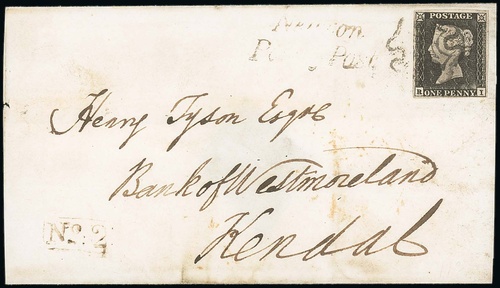 POSTAGE
R I
ONE PENNY
Henry Tyson Esqre
Bank of Westmoreland
Kendal
No. 2